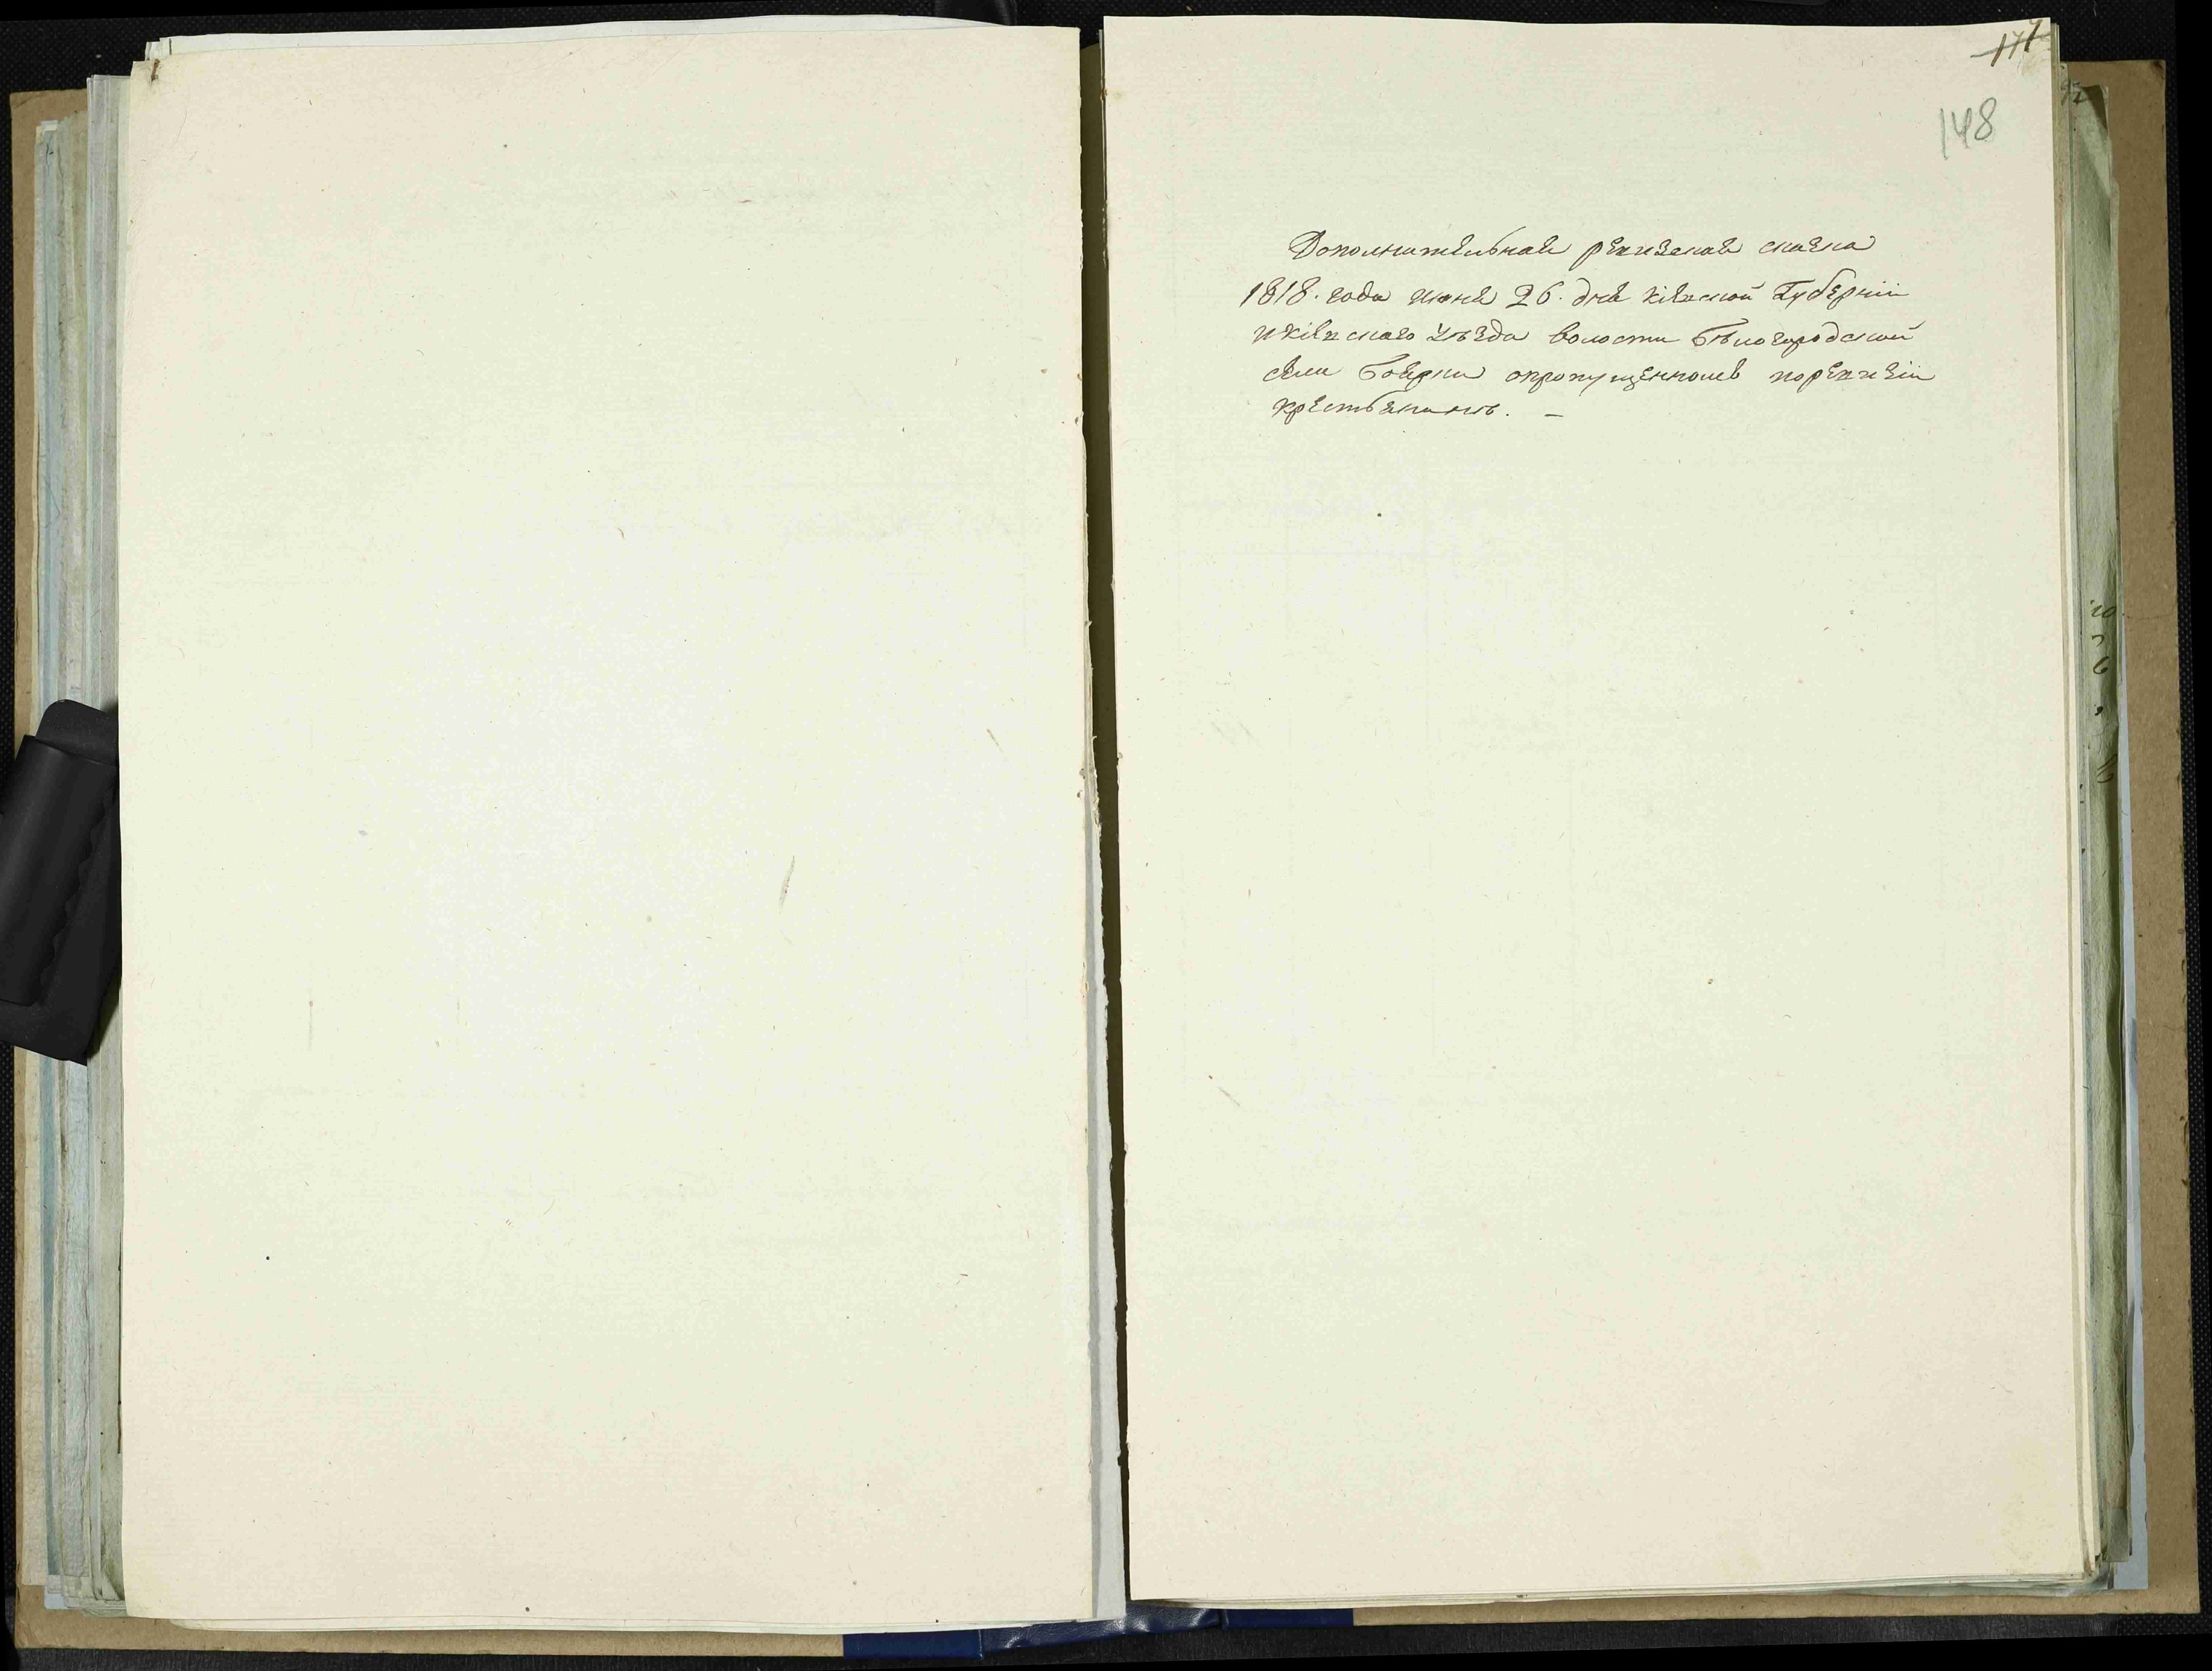 177
148
Дополнительная ревизская сказка
1818. года июня 26. дня киевской Губерніи
и киевскаго уѣзда волости Бѣлогородской
села Боярки о пропущенномъ по ревизіи
крестьянинѣ. –